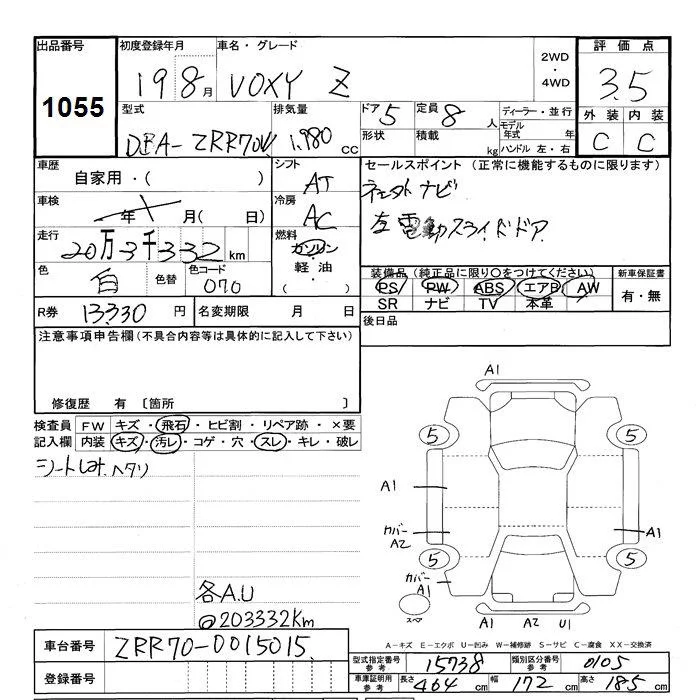 出品番号 1055
初度登録年月 19 8月
車名・グレード VOXY Z
2WD・4WD
評価点 3.5
外装 C 内装 C
型式 DBA-ZRR70W
排気量 1,980 cc
ドア 5 定員 8 人
形状 積載 kg
ディーラー・並行
モデル年式 年
ハンドル 左・右
車歴 自家用・( )
シフト AT
セールスポイント (正常に機能するものに限ります)
ナビ
左電動スライドドア
車検 年 月( 日)
冷房 AC
走行 20万3千332km
燃料 ガソリン・軽油・( )
色 白 色替 色コード 070
装備品 (純正品に限り○をつけてください)
PS PW ABS エアB AW
SR ナビ TV 本革
新車保証書 有・無
R券 13330円
名変期限 月 日
後日品
注意事項申告欄 (不具合内容等は具体的に記入して下さい)
修復歴 有 〔箇所 〕
検査員記入欄
FW キズ・飛石・ヒビ割・リペア跡・×要
内装 キズ・汚レ・コゲ・穴・スレ・キレ・破レ
ヘタリ
各A.U
@203332Km
A1
5 5
A1
カバー A2
A1
5 5
カバー A1
スペア
A1 A2 U1
A-キズ E-エクボ U-凹み W-補修跡 S-サビ C-腐食 XX-交換済
車台番号 ZRR70-0015015
登録番号
型式指定番号 参考 15738
類別区分番号 参考 0105
車庫証明用 参考 長さ 464 cm 幅 172 cm 高さ 185 cm